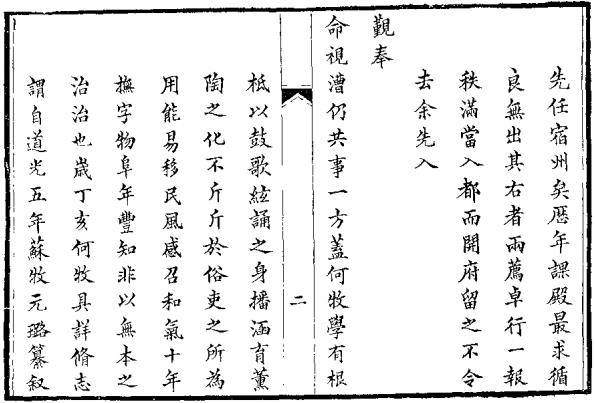 先任宿州矣歷年課殿最求循
良無出其右者兩薦卓行一報
秩滿當入都而開府留之不令
去余先入
覲奉
命視漕仍共事一方蓋何牧學有根
二
柢以鼓歌絃誦之身播涵育薰
陶之化不斤斤於俗吏之所為
用能易移民風感召和氣十年
撫字物阜年豐知非以無本之
治治也歲丁亥何牧具詳脩志
謂自道光五年蘇牧元璐纂敘